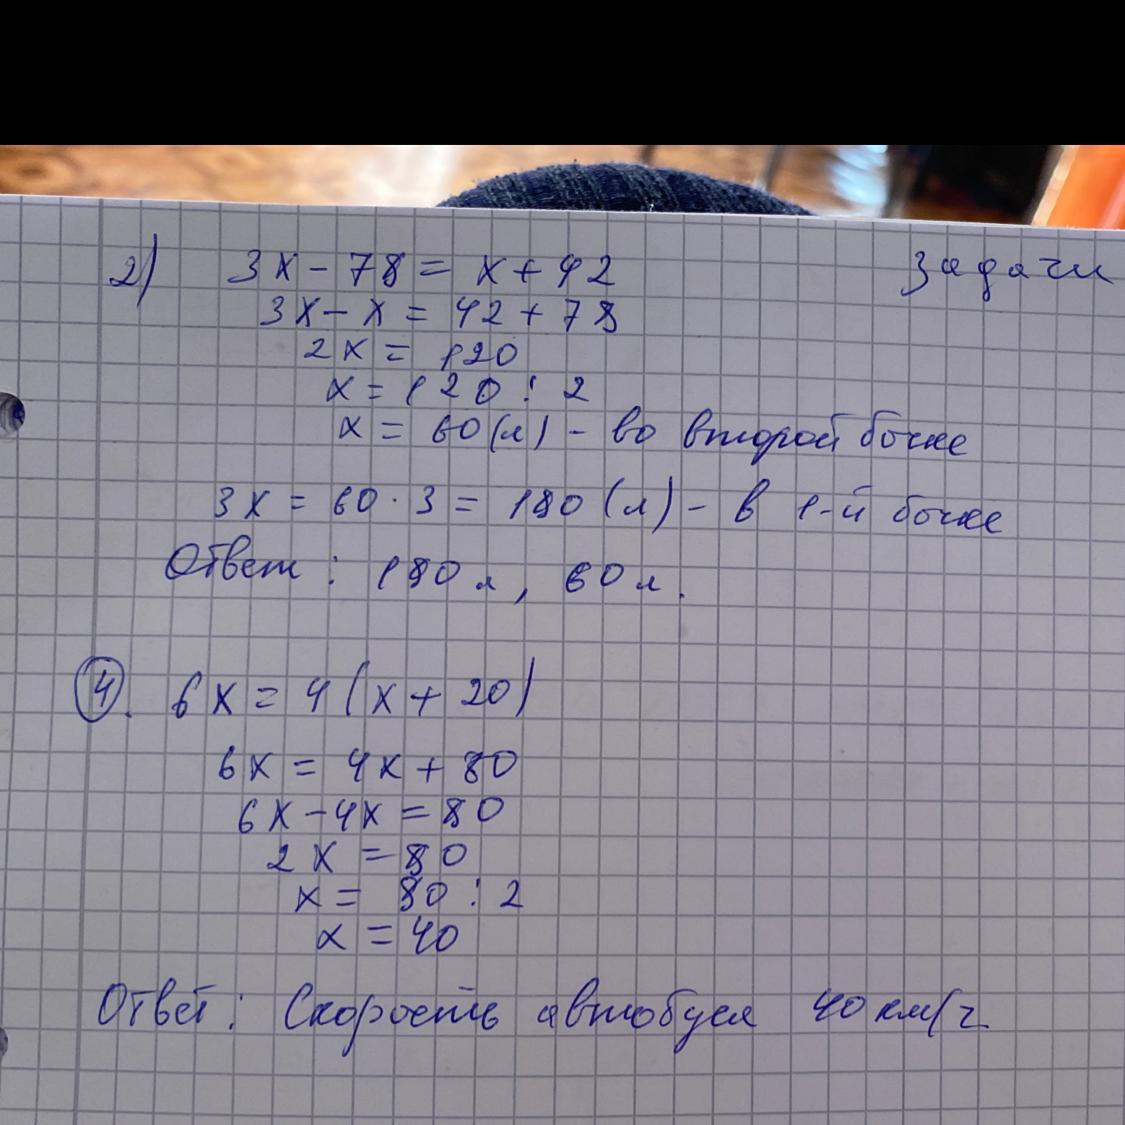 Задачи
2) 3x - 78 = x + 42
3x - x = 42 + 78
2x = 120
x = 120 : 2
x = 60 (л) - во второй бочке
3x = 60 · 3 = 180 (л) - в 1-й бочке
Ответ : 180 л, 60 л.
4. 6x = 4 (x + 20)
6x = 4x + 80
6x - 4x = 80
2x = 80
x = 80 : 2
x = 40
Ответ : Скорость автобуса 40 км/ч